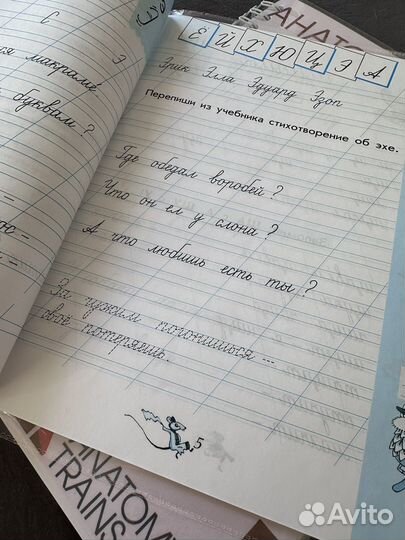 АНАТО
Ё Й Х Ю Ц Э А
С Э
макраме
буквам?
Эрик Элла Эдуард Эзоп
Перепиши из учебника стихотворение об эхе.
Где обедал воробей?
Что он ел у слона?
А что любишь есть ты?
За чужим погонишься ...
своё потеряешь.
5
ANATOMY
TRAINS
Avito